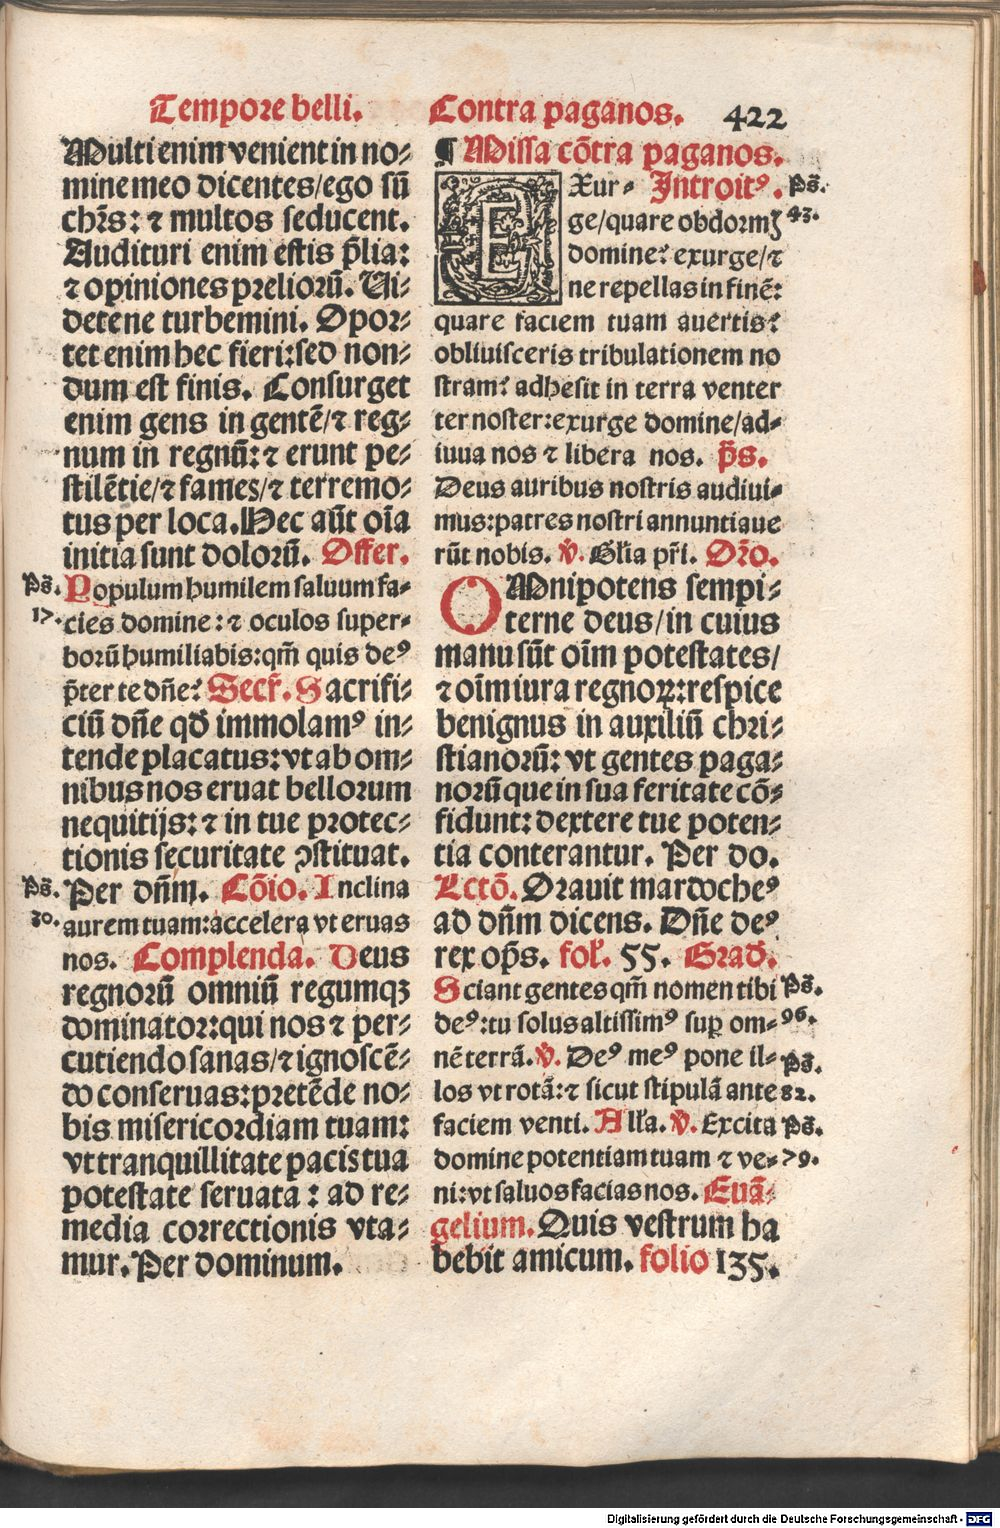 Tempore belli. Contra paganos. 422
Multi enim venient in no⸗
mine meo dicentes/ego sū
chr̄s: ⁊ multos seducent.
Audituri enim estis p̄lia:
⁊ opiniones preliorū. Ui⸗
dete ne turbemini. Opor⸗
tet enim hec fieri:sed non⸗
dum est finis. Consurget
enim gens in gentē/⁊ reg⸗
num in regnū: ⁊ erunt pe⸗
stilētie/⁊ fames/⁊ terremo⸗
tus per loca. Hec aūt oīa
initia sunt dolorū. Offer.
Ps̄. Populum humilem saluum fa⸗
17. cies domine: ⁊ oculos super⸗
borū humiliabis:qm̄ quis deꝰ
p̄ter te dn̄e? Secr̄. Sacrifi⸗
ciū dn̄e qď immolamꝰ in⸗
tende placatus: vt ab om⸗
nibus nos eruat bellorum
nequitijs: ⁊ in tue protec⸗
tionis securitate ꝯstituat.
Ps̄. Per dn̄m. Cōio. Inclina
30. aurem tuam:accelera vt eruas
nos. Complenda. Deus
regnorū omniū regumqꝫ
dominator:qui nos ⁊ per⸗
cutiendo sanas/⁊ ignoscē⸗
do conseruas:pretēde no⸗
bis misericordiam tuam:
vt tranquillitate pacis tua
potestate seruata: ad re⸗
media correctionis vta⸗
mur. Per dominum.
¶ Missa cōtra paganos.
EXur⸗ Introitꝰ. Ps̄.
ge/quare obdormꝫ 43.
domine? exurge/⁊
ne repellas in finē:
quare faciem tuam auertis?
obliuisceris tribulationem no
stram? adhesit in terra venter
ter noster:exurge domine/ad⸗
iuua nos ⁊ libera nos. p̄s.
Deus auribus nostris audiui⸗
mus:patres nostri annuntiaue
rūt nobis. ℣. Gl̄ia pr̄i. Or̄o.
OMnipotens sempi⸗
terne deus/in cuius
manu sūt oīm potestates/
⁊ oīm iura regnoꝝ:respice
benignus in auxiliū chri⸗
stianorū: vt gentes paga⸗
norū que in sua feritate cō⸗
fidunt: dextere tue poten⸗
tia conterantur. Per do.
Lectō. Orauit mardocheꝰ
ad dn̄m dicens. Dn̄e deꝰ
rex op̄s. fol̄. 55. Grad̄.
Sciant gentes qm̄ nomen tibi Ps̄.
deꝰ:tu solus altissimꝰ suꝑ om⸗ 96.
nē terrā. ℣. Deꝰ meꝰ pone il⸗ Ps̄.
los vt rotā:⁊ sicut stipulā ante 82.
faciem venti. All̄a. ℣. Excita Ps̄.
domine potentiam tuam ⁊ ve⸗ 79.
ni:vt saluos facias nos. Euā⸗
gelium. Quis vestrum ha
bebit amicum. folio 135.
Digitalisierung gefördert durch die Deutsche Forschungsgemeinschaft - DFG